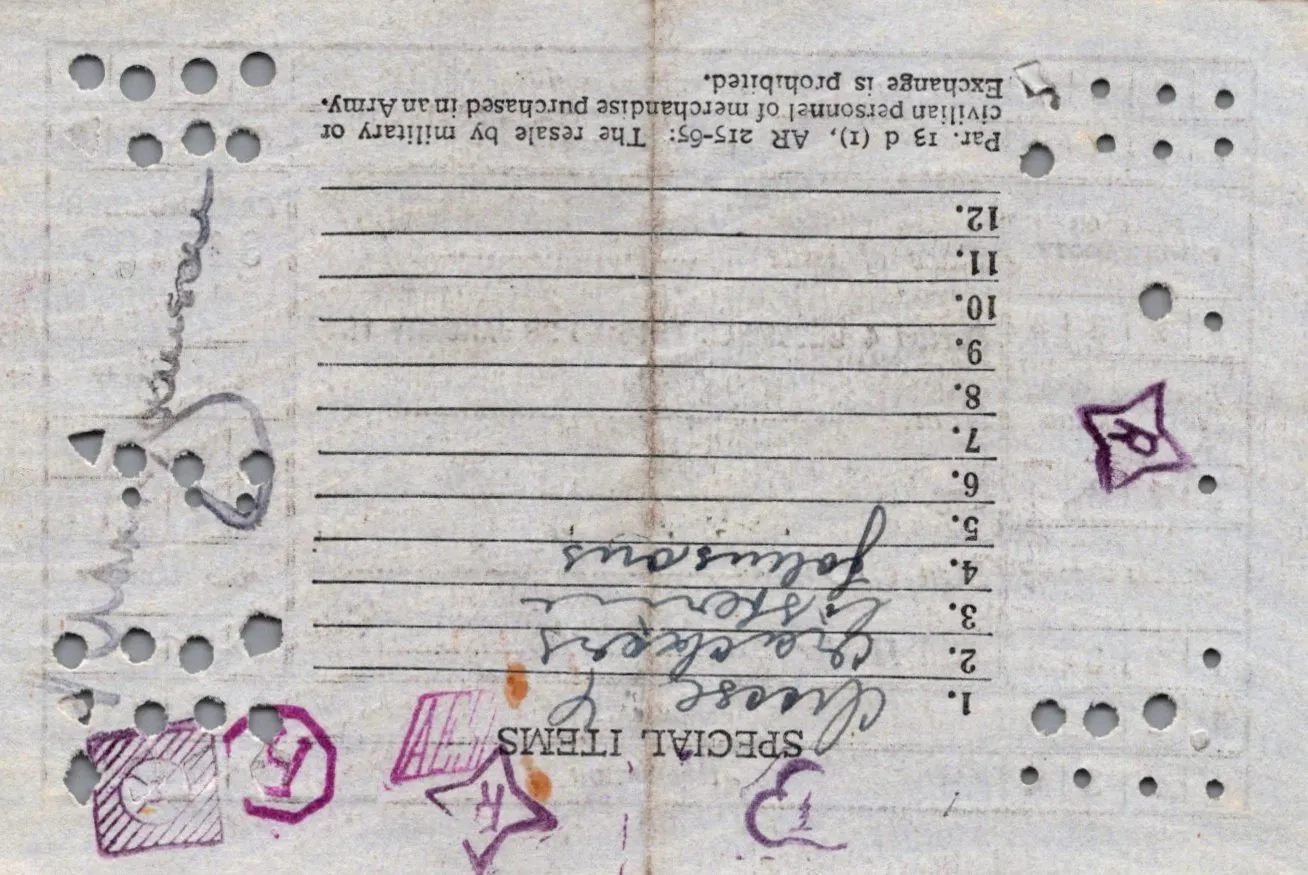 SPECIAL ITEMS
1. Cheese
2. Crackers
3. Listerine
4. Johnsons
5.
6.
7.
8.
9.
10.
11.
12.
Par. 13 d (1), AR 215-65: The resale by military or
civilian personnel of merchandise purchased in an Army.
Exchange is prohibited.